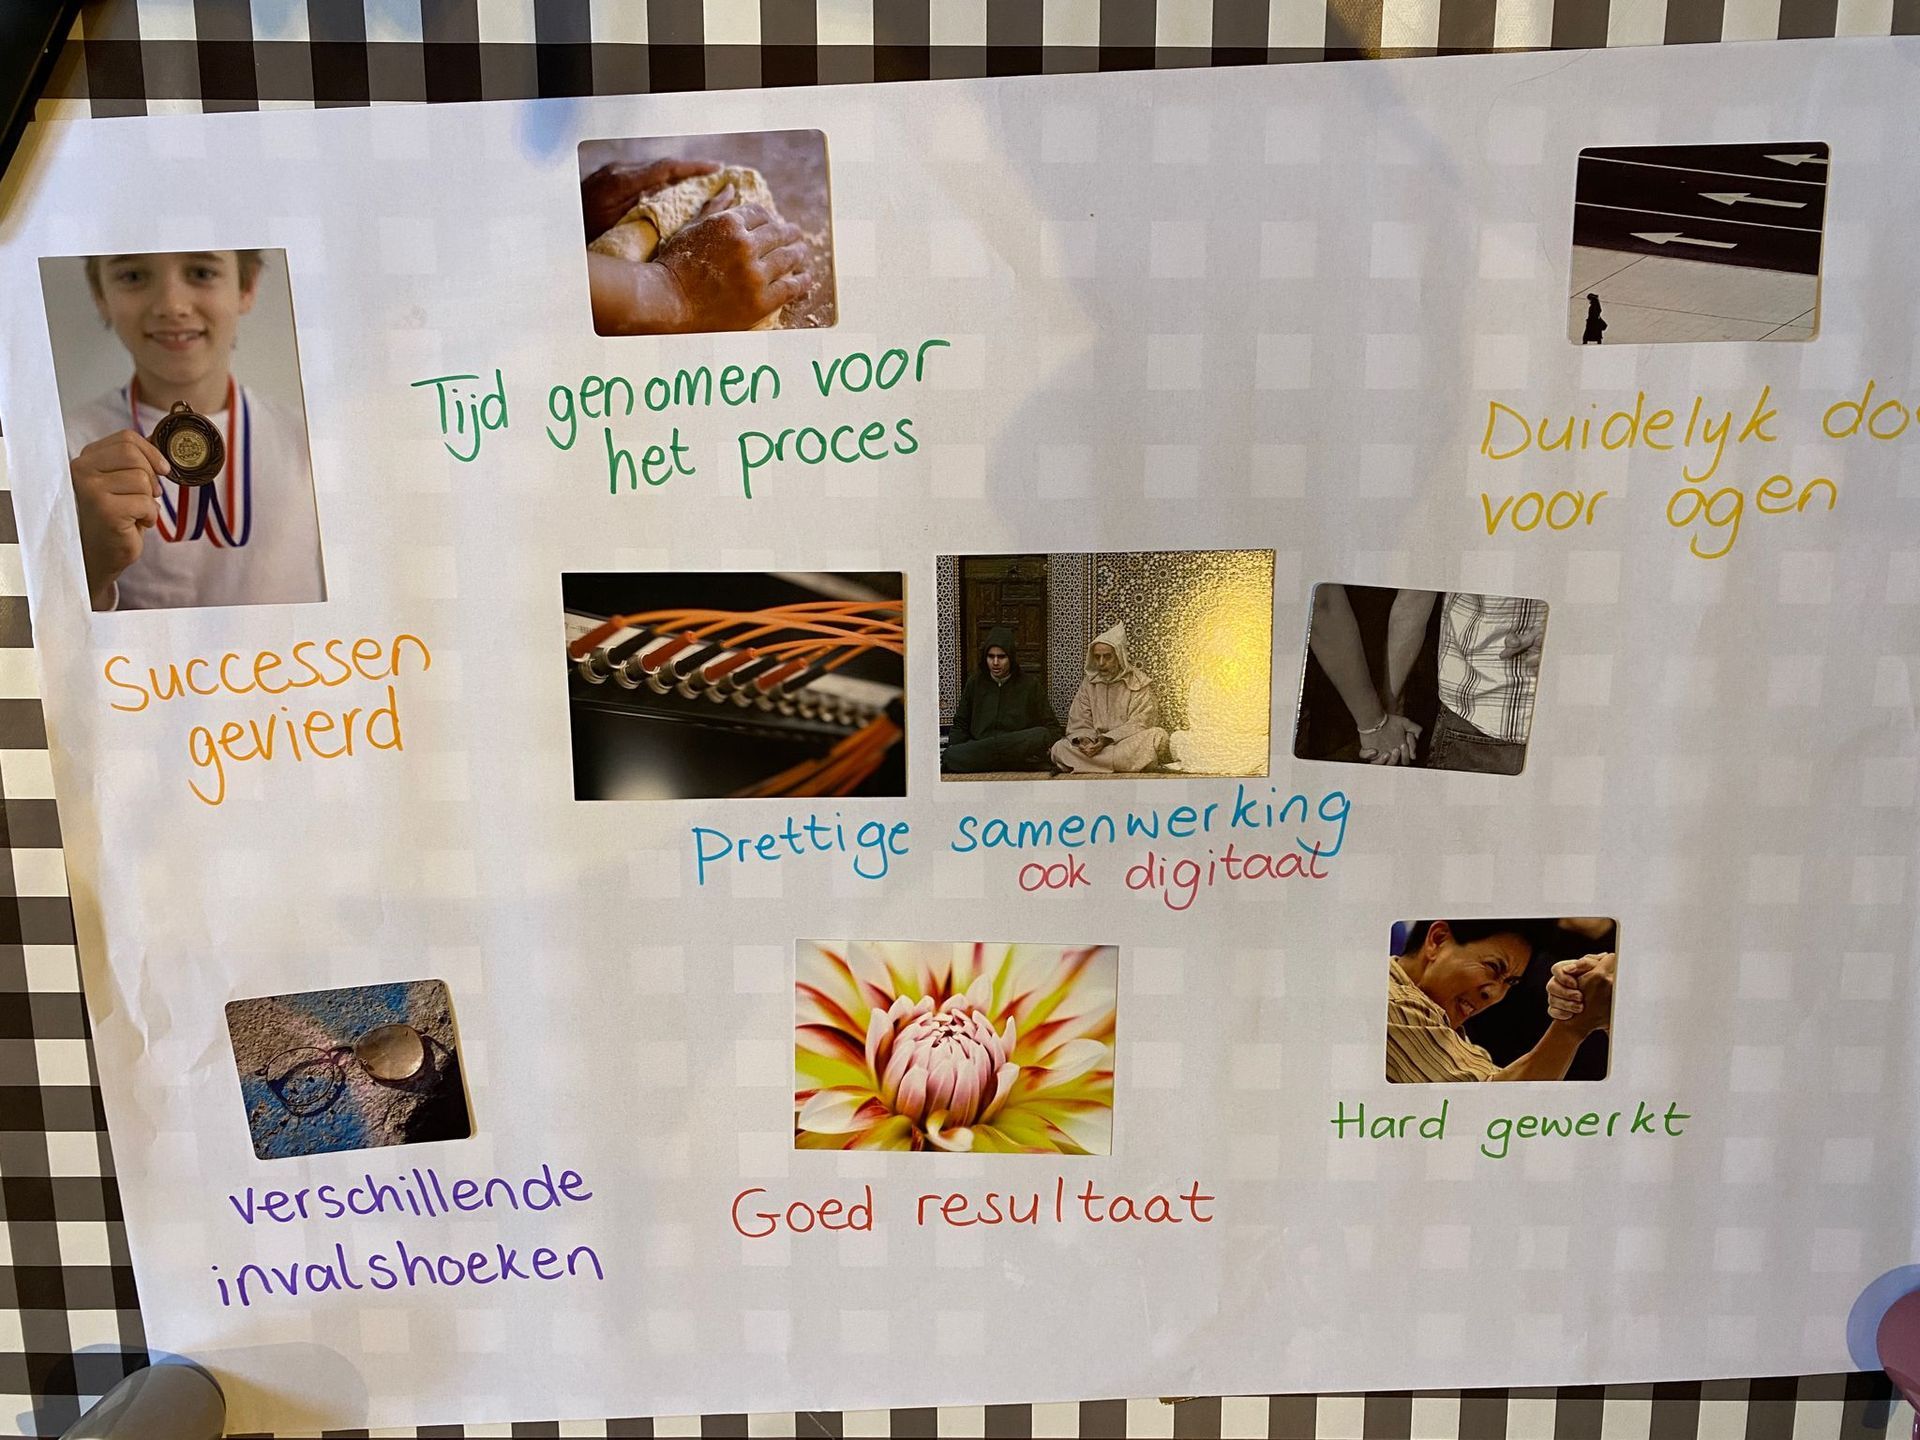 Tijd genomen voor
het proces
Duidelyk do
voor ogen
Successen
gevierd
Prettige samenwerking
ook digitaal
Hard gewerkt
verschillende
invalshoeken
Goed resultaat